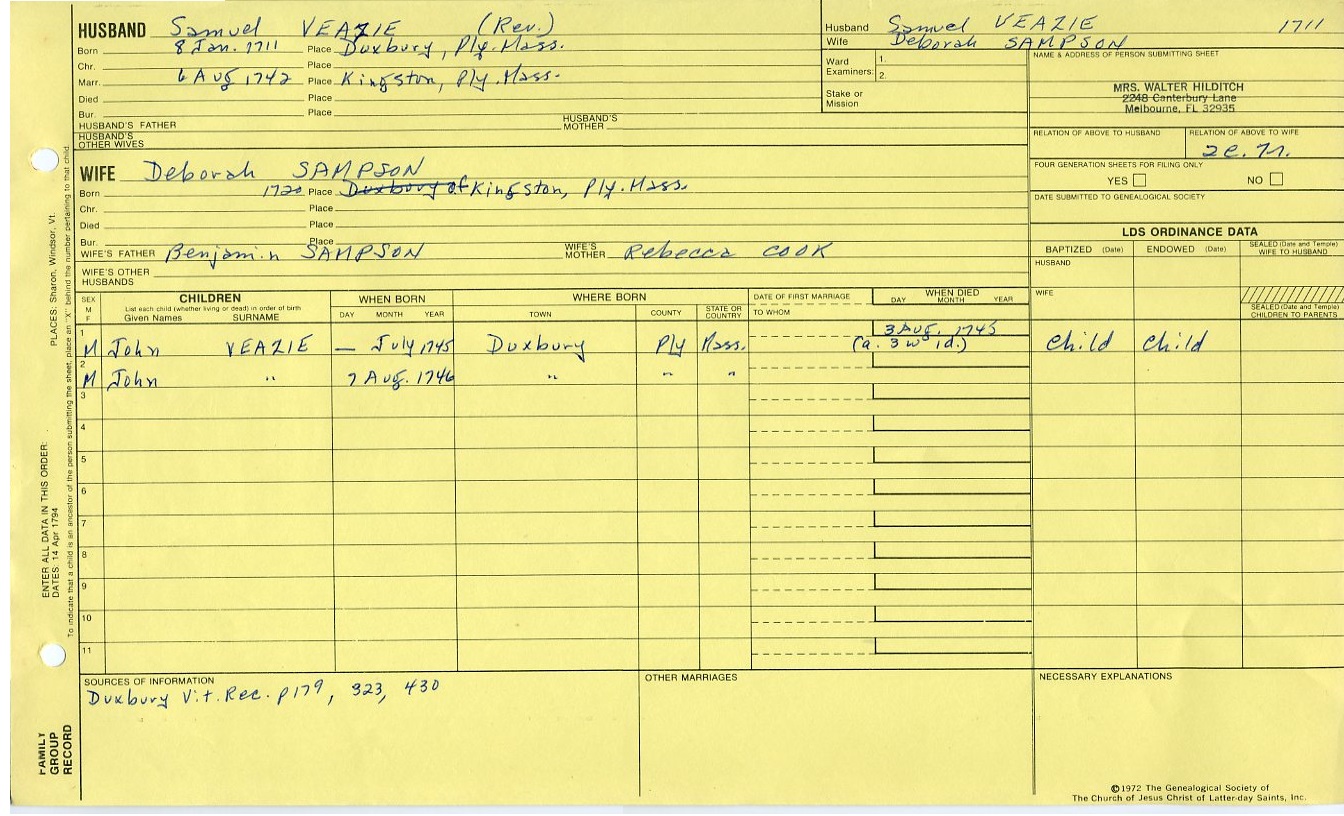 HUSBAND Samuel VEAZIE (Rev.)
Born 8 Jan. 1711 Place Duxbury, Ply. Mass.
Chr. Place
Marr. 6 Aug 1742 Place Kingston, Ply. Mass.
Died Place
Bur. Place
HUSBAND'S FATHER HUSBAND'S MOTHER
HUSBAND'S OTHER WIVES
Husband Samuel VEAZIE 1711
Wife Deborah SAMPSON
Ward Examiners: 1.
2.
Stake or Mission
NAME & ADDRESS OF PERSON SUBMITTING SHEET
MRS. WALTER HILDITCH
2248 Canterbury Lane
Melbourne, FL 32935
RELATION OF ABOVE TO HUSBAND RELATION OF ABOVE TO WIFE
2c. 7r.
FOUR GENERATION SHEETS FOR FILING ONLY
YES NO
DATE SUBMITTED TO GENEALOGICAL SOCIETY
WIFE Deborah SAMPSON
Born 1720 Place Duxbury of Kingston, Ply. Mass.
Chr. Place
Died Place
Bur. Place
WIFE'S FATHER Benjamin SAMPSON WIFE'S MOTHER Rebecca COOK
WIFE'S OTHER HUSBANDS
LDS ORDINANCE DATA
BAPTIZED (Date) ENDOWED (Date) SEALED (Date and Temple) WIFE TO HUSBAND
HUSBAND
WIFE
SEALED (Date and Temple) CHILDREN TO PARENTS
SEX M F
CHILDREN
List each child (whether living or dead) in order of birth
Given Names SURNAME
WHEN BORN
DAY MONTH YEAR
WHERE BORN
TOWN COUNTY STATE OR COUNTRY
DATE OF FIRST MARRIAGE
TO WHOM
WHEN DIED
DAY MONTH YEAR
1 M John VEAZIE — July 1745 Duxbury Ply Mass. 3 Aug. 1745 (a. 3 w 1d.) Child Child
2 M John " 7 Aug. 1746 " " "
3
4
5
6
7
8
9
10
11
SOURCES OF INFORMATION
Duxbury Vit. Rec. p179, 323, 430
OTHER MARRIAGES
NECESSARY EXPLANATIONS
©1972 The Genealogical Society of
The Church of Jesus Christ of Latter-day Saints, Inc.
ENTER ALL DATA IN THIS ORDER:
DATES: 14 Apr 1794
PLACES: Sharon, Windsor, Vt.
To indicate that a child is an ancestor of the person submitting the sheet, place an "X" behind the number pertaining to that child.
FAMILY
GROUP
RECORD